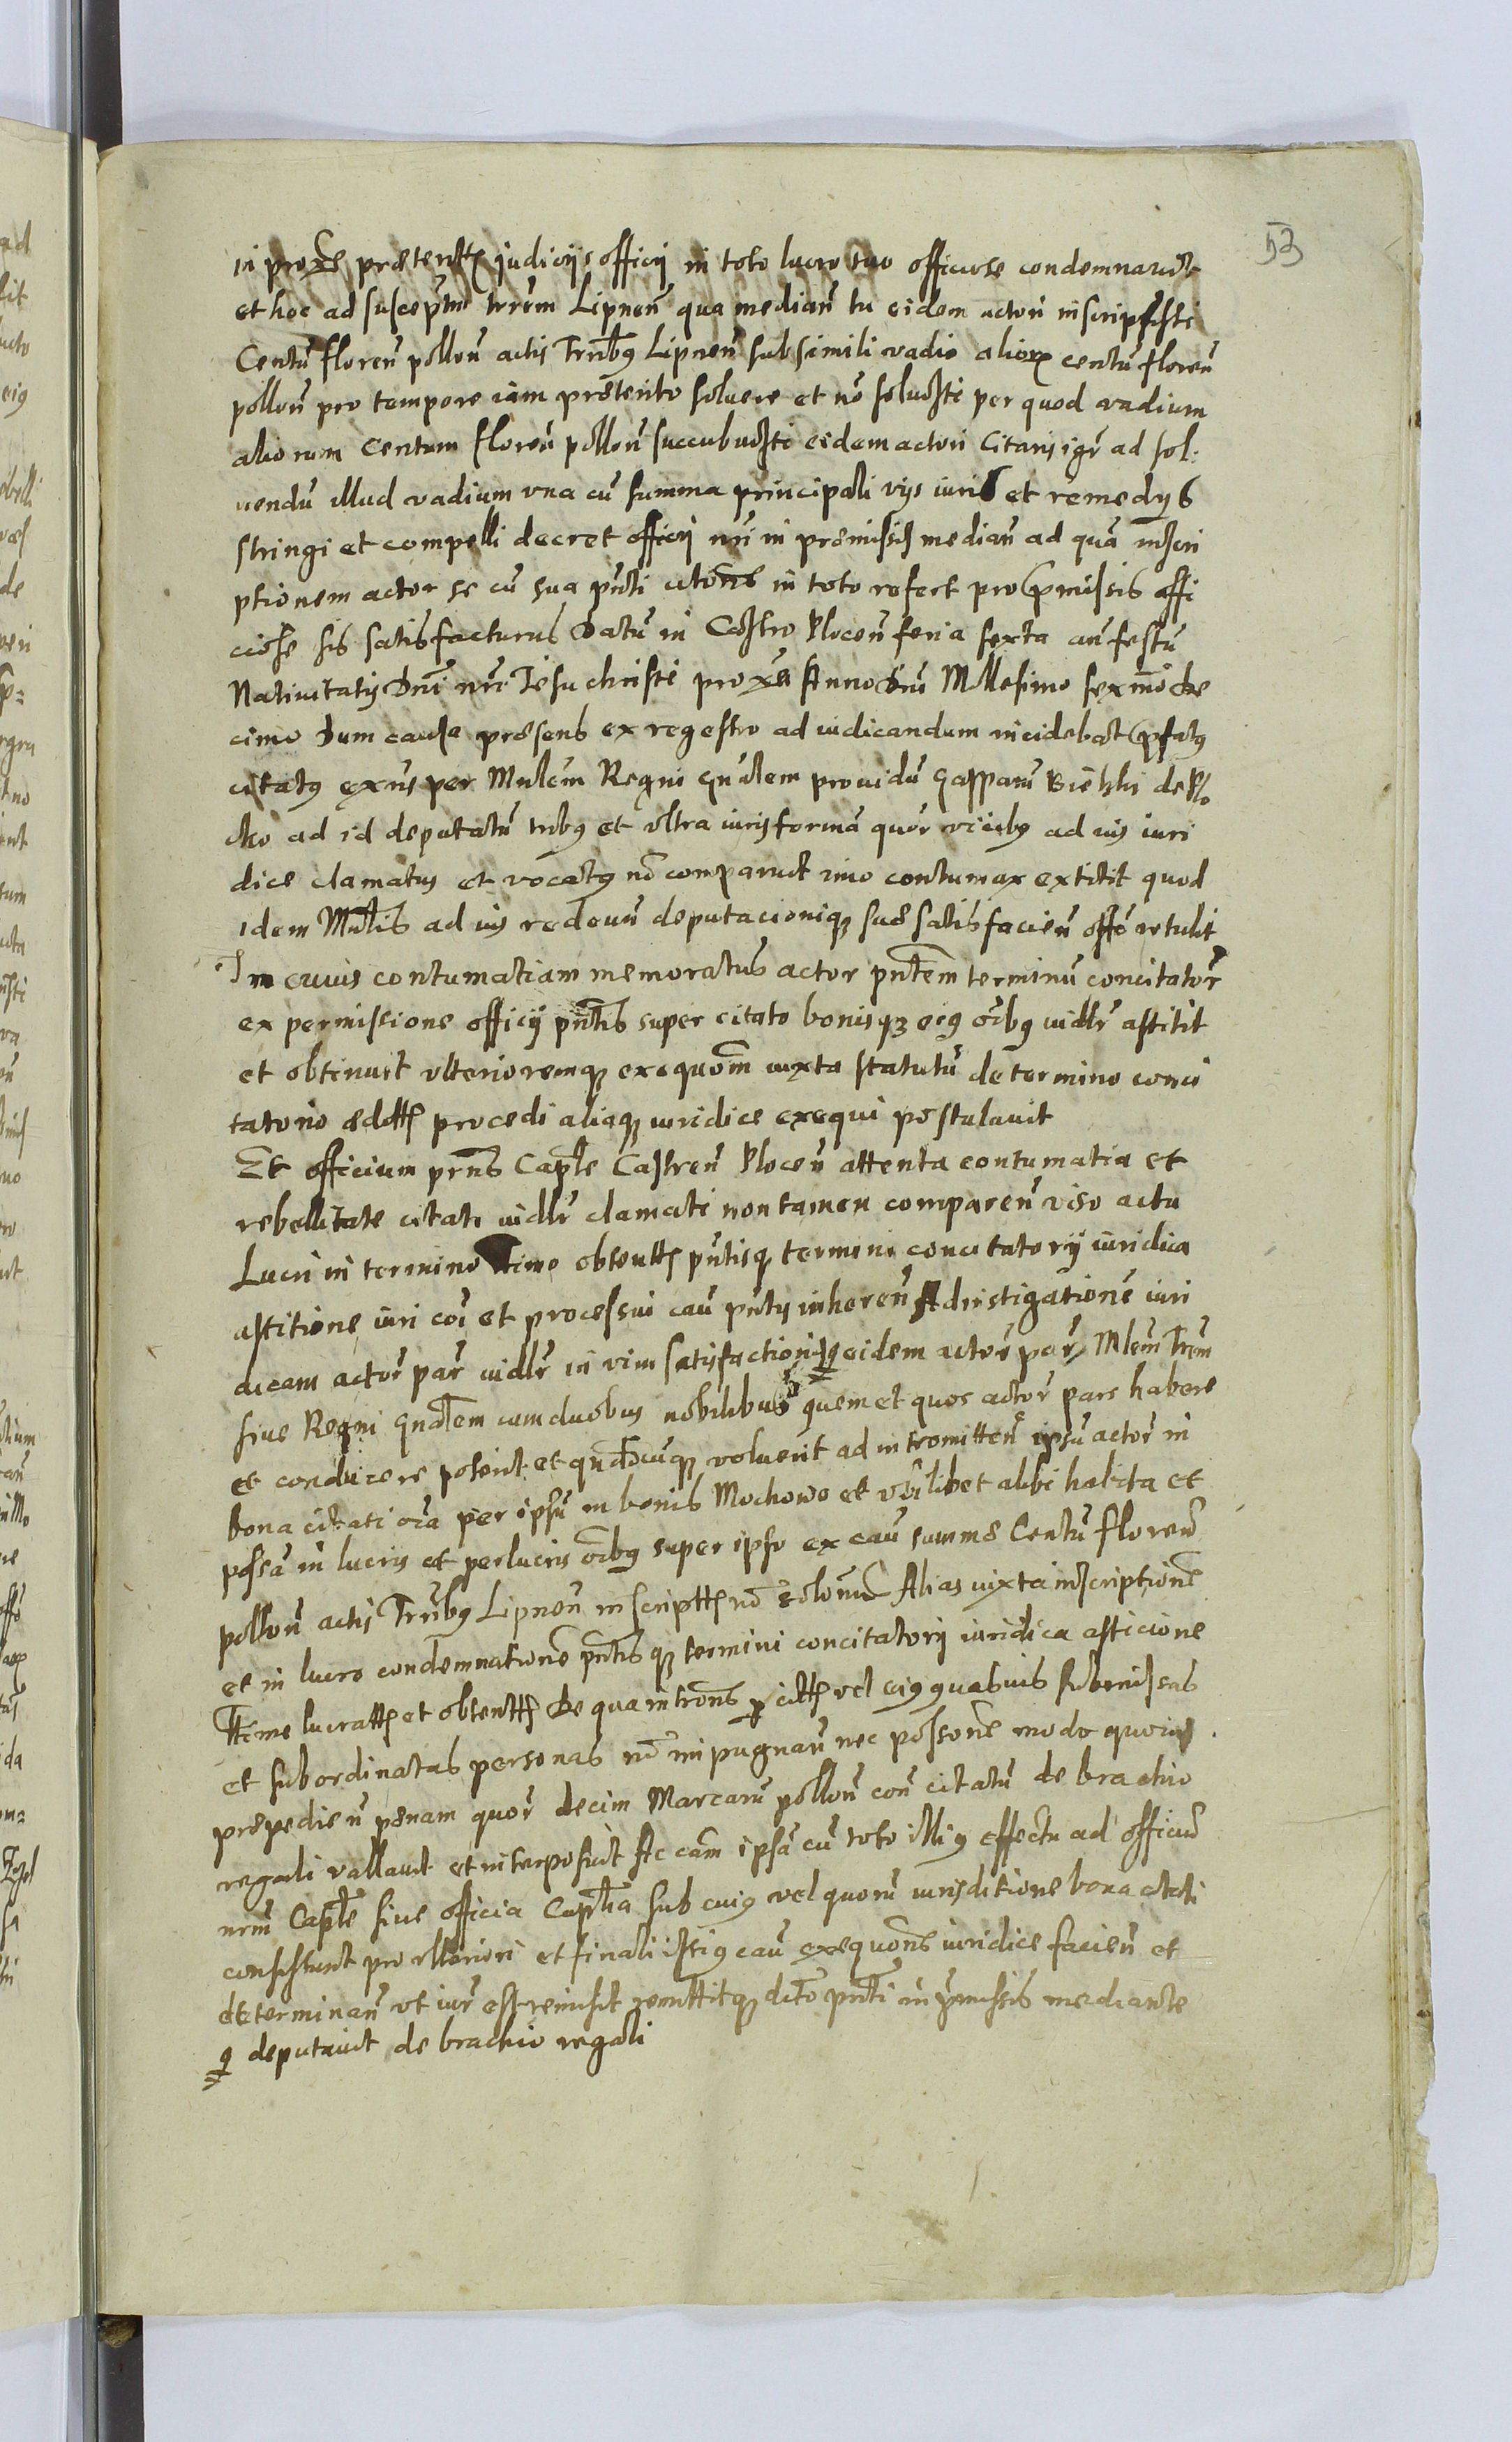 53
in proxe præteritt judicijs officij in toto lucro tuo officiose condemnavit
et hoc ad susceptm trrem Lipnen̄ qua median̄ tu eidem actori inscripsisti
Centū floren̄ pollon̄ actis Trribus Lipnen̄ sub simili vadio aliorꝝ centū floren̄
pollon̄ pro tempore iam præterito soluere et nō soluisti per quod vadium
aliorum Centum floren̄ pollon̄ succubuisti eidem actori Citaris igr̄ ad sol:
uendū illud vadium vna cū summa principali vijs iuris et remedijs
stringi et compelli decret officij nri in præmissis median̄ ad quā inscri
ptionem actor se cū sua pn̄ti citōne in toto refert pro pmissis offi
ciose sis satisfacturus Datū in Castro Plocen̄ feria sexta an̄ festū
Natiuitatis Dni nri Jesu christi proxa Anno Dni Millesimo sexmo de
cimo Dum causa præsens ex regestro ad iudicandum incidebat pfatus
citatus exns per Mnlem Regni gnalem prouidū Gasparū de Plo
cko ad id deputatū tribus et vltra iuris formā quor vicibus ad ius iuri
dice clamatus et vocatus nō comparuit imo contumax extitit quod
idem Mnlis ad ius redeun̄ deputacioniqꝫ suæ satisfacien̄ offo retulit
In cuius contumatiam memoratus actor pn̄tem terminū concitator̄
ex permissione officij pn̄tis super citato bonisqꝫ eius oibus iudlr astitit
et obtinuit vlterioremqꝫ exequōm iuxta statutū de termino conci
tatorio ædtt procedi aliaqꝫ iuridice exequi postulavit
Et officium prns Capłe Castren̄ Plocen̄ attenta contumatia et
rebellitate citati iudlr clamati non tamen comparen̄ viso actu
Lucri in termino ttimo obtentt pn̄tisqꝫ termini concitatorij iuridica
astitione iuri coi et processui cau pn̄tis inheren̄ Ad instigationē iuri
dicam actor par iudlr in vim satisfactionis eidem actor par Mlem Trem
siue Regni gnalem cum duobus nobilibus quem et quos actor pars habere
et conducere poterit et qndocūqꝫ voluerit ad intromitten̄ ipsū actor in
bona citati oia per ipsū in bonis Mochowo et vbilibet alibi habita et
possa in lucris et perlucris oibus super ipso ex cau summæ Centū floren̄
pollon̄ actis Trribus Lipnen̄ inscriptt nō Alias iuxta inscriptionē
et in lucro condemnationē pn̄tisqꝫ termini concitatorij iuridica asticione
ttime lucratt et obtentt De qua introns p citt vel eius quasuis submissas
et subordinatas personas nō impugnan̄ nec possone modo quouis
præpedien̄ pænam quor decim Marcarū pollon̄ con citatū de brachio
regali vallauit et interposuit Ac cam ipsā cū toto illius effectu ad officiū
nrm Capłe siue officia Capłia sub cuius vel quorū iurisditione bona citati
consistunt pro vlteriori et finali istius cau exequōne iuridice facien̄ et
determinan̄ vt iur̄ est remisit remittitqꝫ dēto pn̄ti in pmissis mediante
deputauit de brachio regali